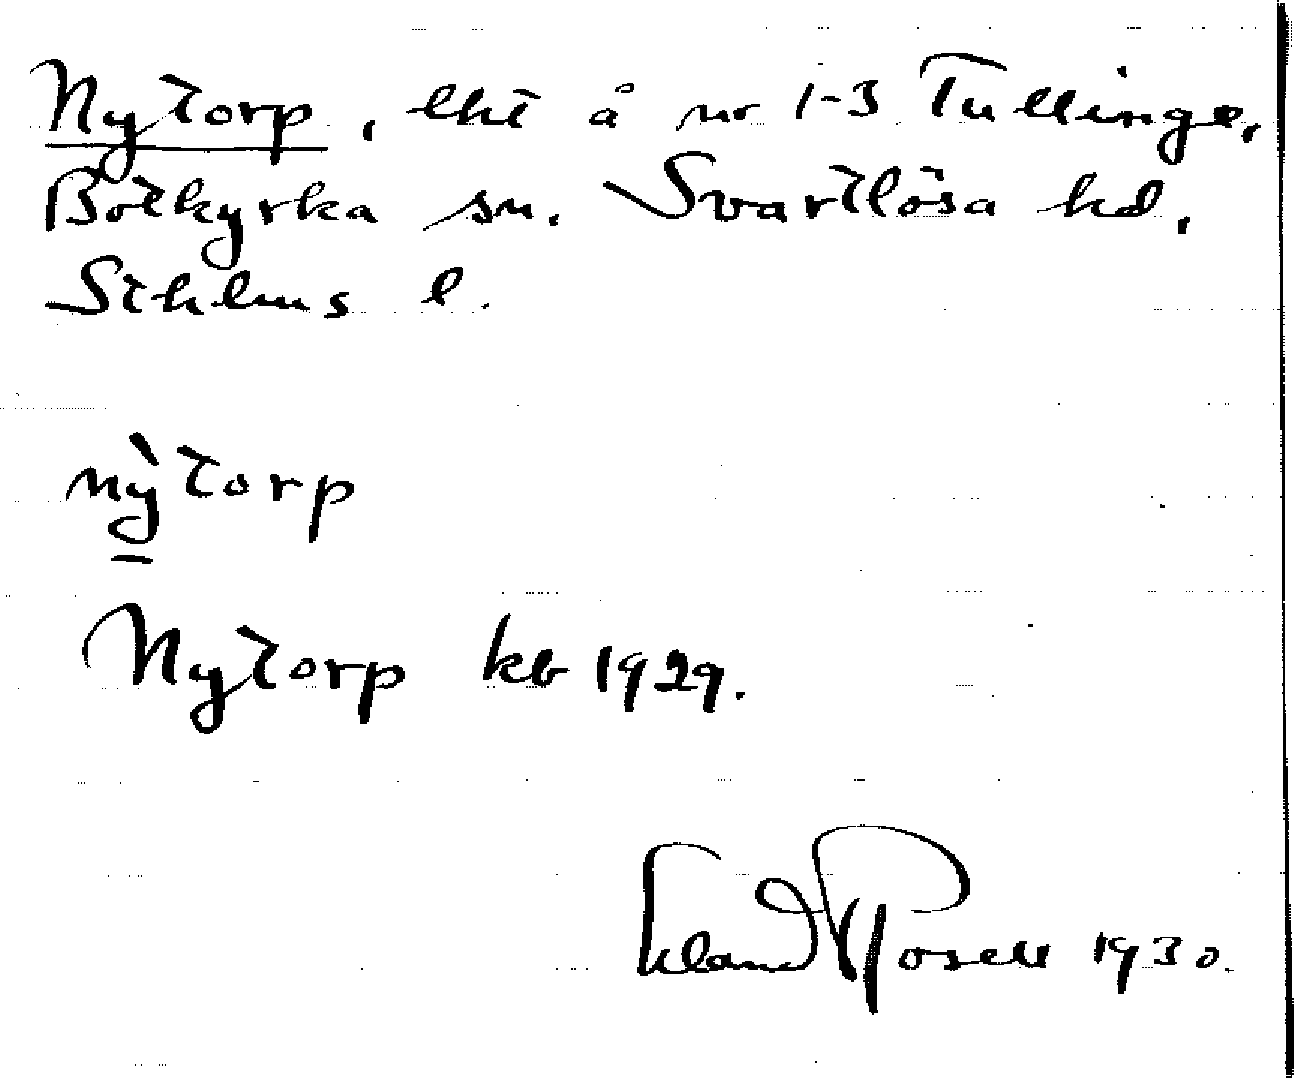 Nytorp, lht å nr 1-3 Tullinge,
Botkyrka sn. Svartlösa hd,
Sthlms l.
nỳtorp
Nytorp kb 1929.
Erland Rosell 1930.